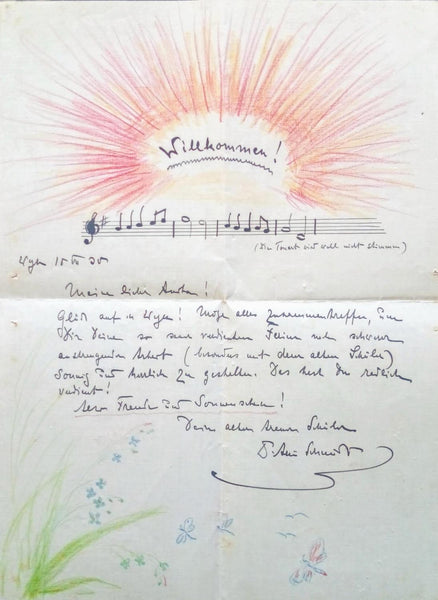 Willkommen!
(Die Tonart wird wohl nicht stimmen)
Wyk 15
Meine liebe
Glück auf in Wyk! Möge alles zusammentreffen, um
Dir Deine so sehr verdienten Ferien nach schwerer
anstrengender Arbeit (besonders mit dem alten Schüler)
sonnig und herrlich zu gestalten. Das hast Du redlich
verdient!
Also Freude und Sonnenschein!
Dein alter treuer Schüler